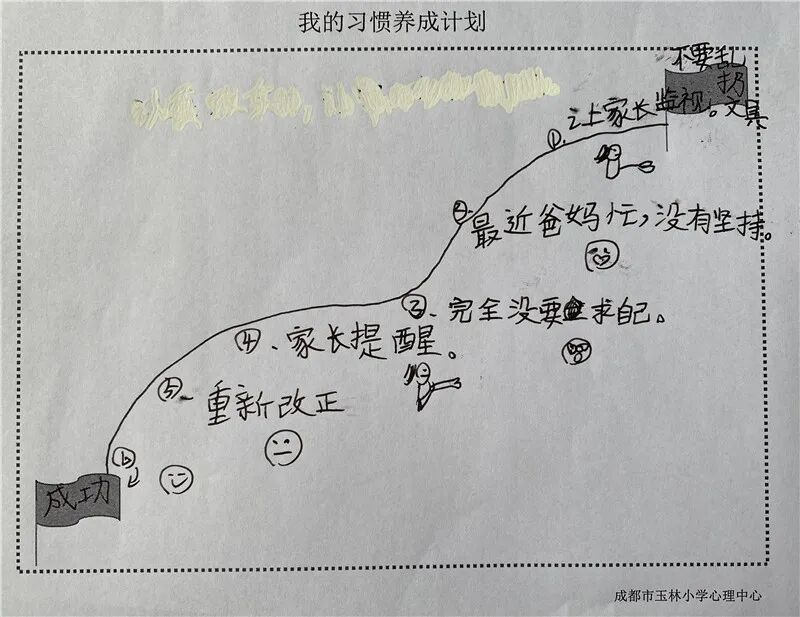 我的习惯养成计划
不要乱
扔
文具
①.让家长监视。
②.最近爸妈忙，没有坚持。
③、完全没要求自己。
④、家长提醒。
⑤、重新改正
⑥
成功
成都市玉林小学心理中心